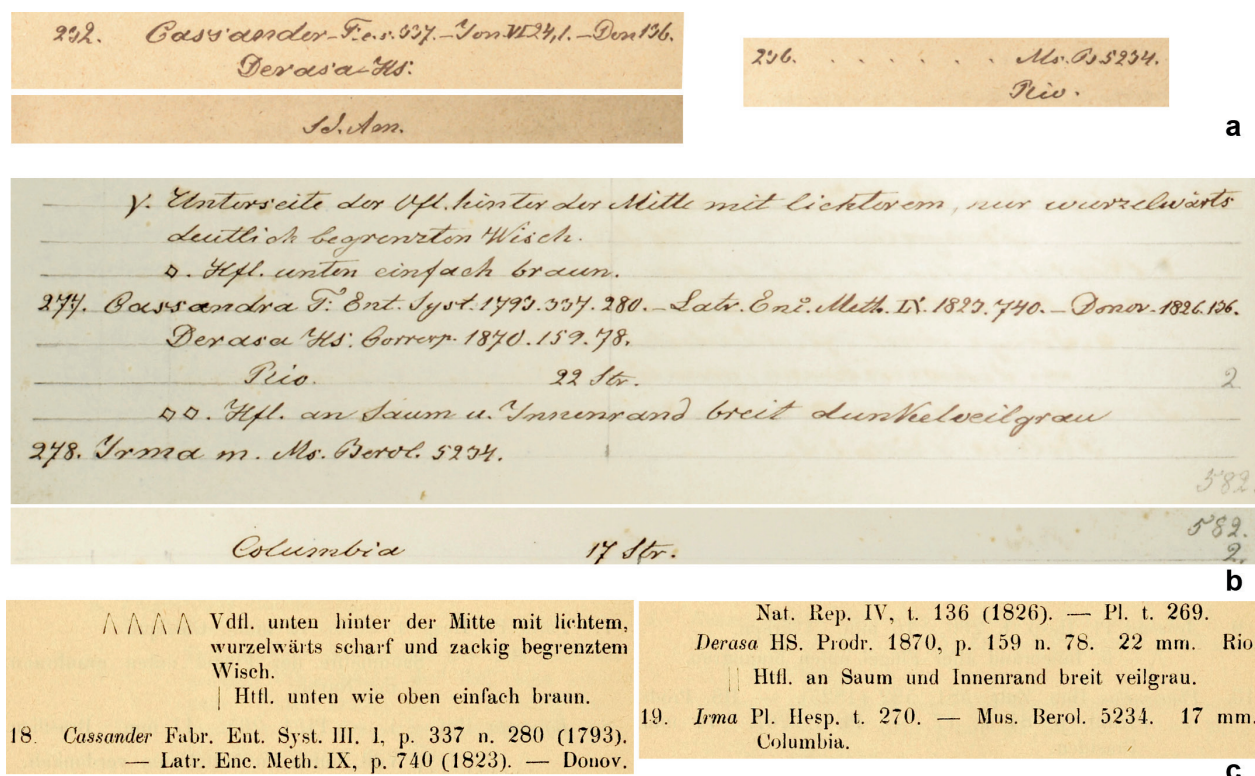 232. Cassander F. e. s. 337. – Jon. VI 24,1. – Don 136.
Derasa Hs.
Sd. Am.
236. . . . . . . Ms. B 5234.
Rio.
a
γ. Unterseite der Vfl. hinter der Mitte mit lichterem, nur wurzelwärts
deutlich begrenzten Wisch.
◊. Hfl. unten einfach braun.
277. Cassandra F. Ent. Syst. 1793. 337. 280. – Latr. Enc. Meth. IX. 1823. 740. – Donov. 1826. 136.
Derasa Hs. Corresp. 1870. 159. 78.
Rio. 22 Str. 2
◊◊. Hfl. an Saum u. Innenrand breit dunkelveilgrau
278. Irma m. Ms. Berol. 5234.
582.
582.
Columbia 17 Str. 2.
b
Λ Λ Λ Λ Vdfl. unten hinter der Mitte mit lichtem,
wurzelwärts scharf und zackig begrenztem
Wisch.
| Htfl. unten wie oben einfach braun.
18. Cassander Fabr. Ent. Syst. III. I, p. 337 n. 280 (1793).
— Latr. Enc. Meth. IX, p. 740 (1823). — Donov.
Nat. Rep. IV, t. 136 (1826). — Pl. t. 269.
Derasa HS. Prodr. 1870, p. 159 n. 78. 22 mm. Rio
|| Htfl. an Saum und Innenrand breit veilgrau.
19. Irma Pl. Hesp. t. 270. — Mus. Berol. 5234. 17 mm.
Columbia.
c